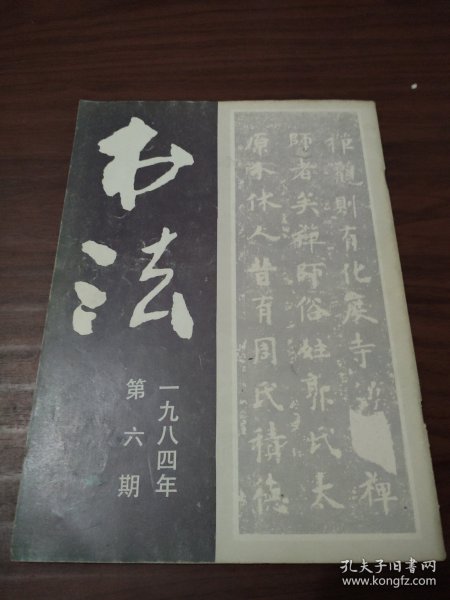 书法
一九八四年
第六期
推观则有化度寺
禅
师者矣禅师俗姓郭氏太
原介休人昔有周氏积德
孔夫子旧书网
www.kongfz.com